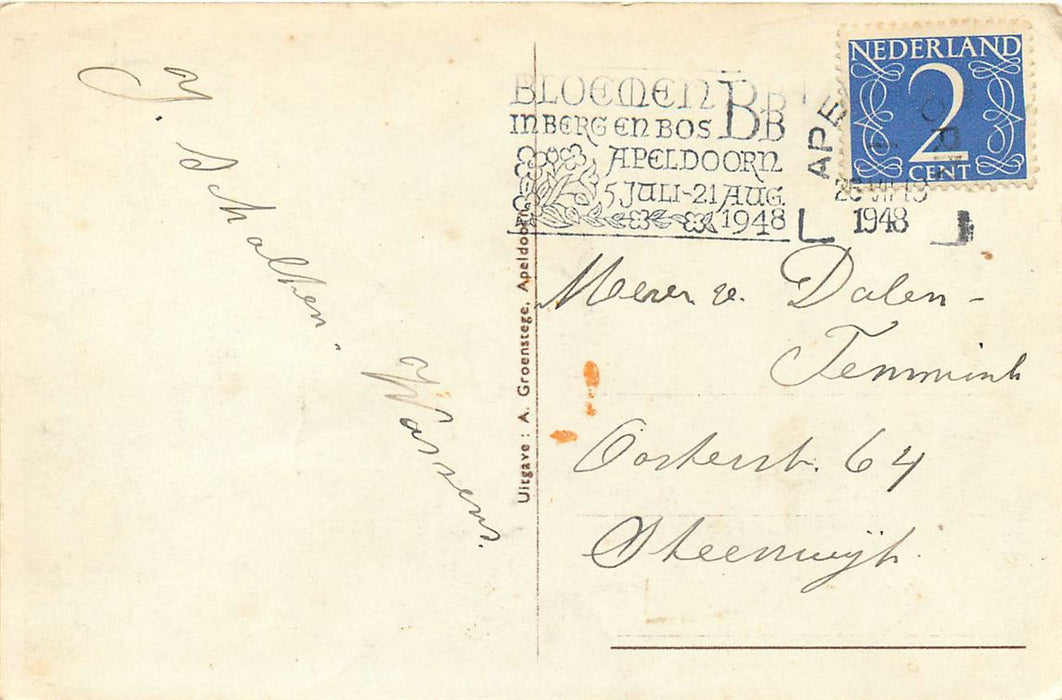 J. Scholten - Wassens.
BLOEMEN
IN BERG EN BOS BBB
APELDOORN
5 JULI-21 AUG.
1948
APE
1948
NEDERLAND
2
CENT
Uitgave : A. Groenstege, Apeldoorn
Dalen -
Temmink
Oosterst. 64
Steenwijk.